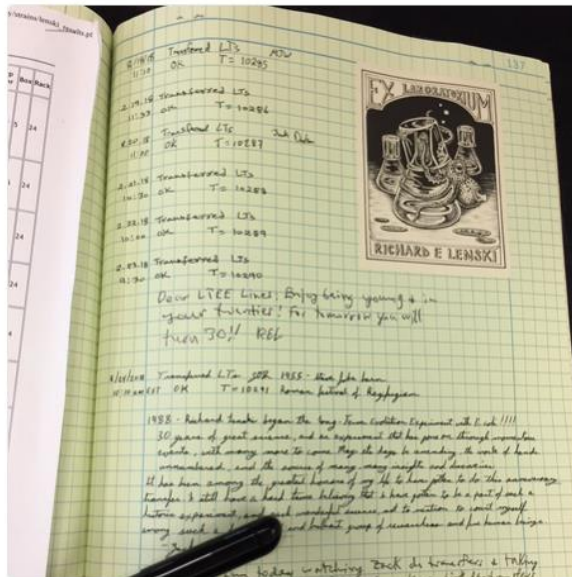 s/strains/lenski_results.pl
Box Rack
5 24
24
24
137
2/18/18 Transferred LTs
11:10 OK T=10285
2.19.18 Transferred LTs
11:35 OK T=10286
2.20.18 Transferred LTs
11:20 OK T=10287
2.21.18 Transferred LTs
10:30 OK T=10288
2.22.18 Transferred LTs
10:00 OK T=10289
2.23.18 Transferred LTs
11:30 OK T=10290
EX LABORATORIUM
RICHARD E LENSKI
Dear LTEE Lines: Enjoy being young & in
your twenties! For tomorrow you will
turn 30!! REL
2/24/2018 Transferred LTs 1955 - Steve Jobs born
EST OK T=10291 Roman festival of Regifugium
1988 - Richard Lenski began the Long-Term Evolution Experiment with E. coli !!!!
30 years of great science, and an experiment that has gone on through momentous
events, with many more to come. May the days be unending, the works of hands
unnumbered, and the source of many, many insights and discoveries.
It has been among the greatest honors of my life to have gotten to do this anniversary
transfer. I still have a hard time believing that I have gotten to be a part of such a
historic experiment, and such wonderful science, not to mention to count myself
among such a and brilliant group of researchers and fine human beings.
today watching Zack do transfers & taking